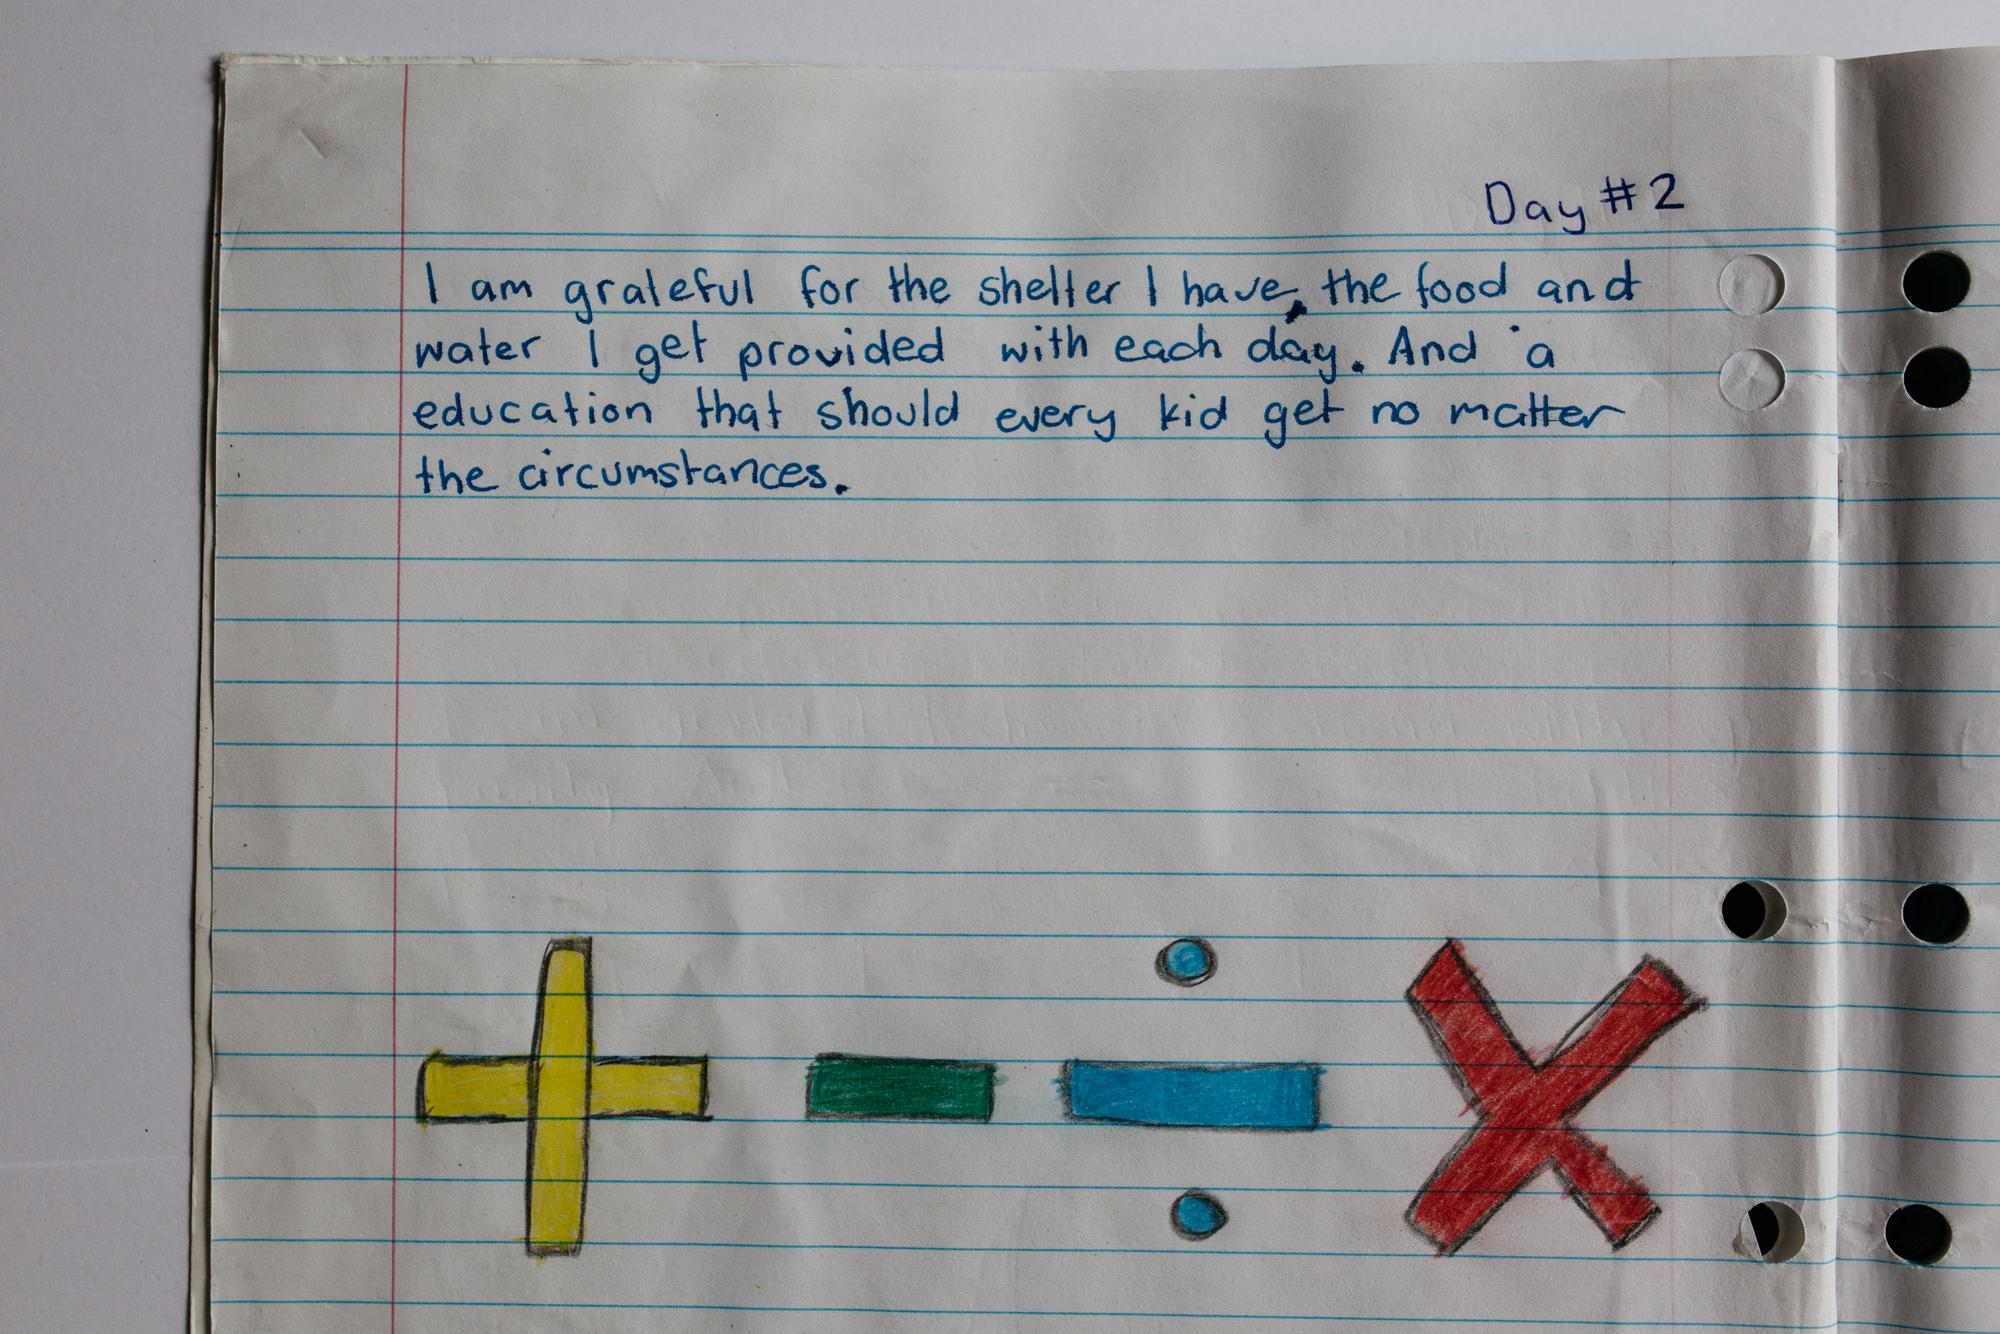 Day #2
I am grateful for the shelter I have, the food and
water I get provided with each day. And a
education that should every kid get no matter
the circumstances.
+ - ÷ X